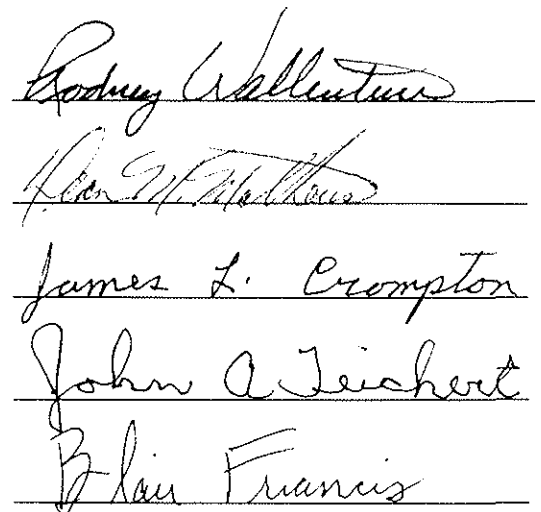 Rodney Wallentine
Dean M. Mathews
James L. Crompton
John A Teichert
Blair Francis